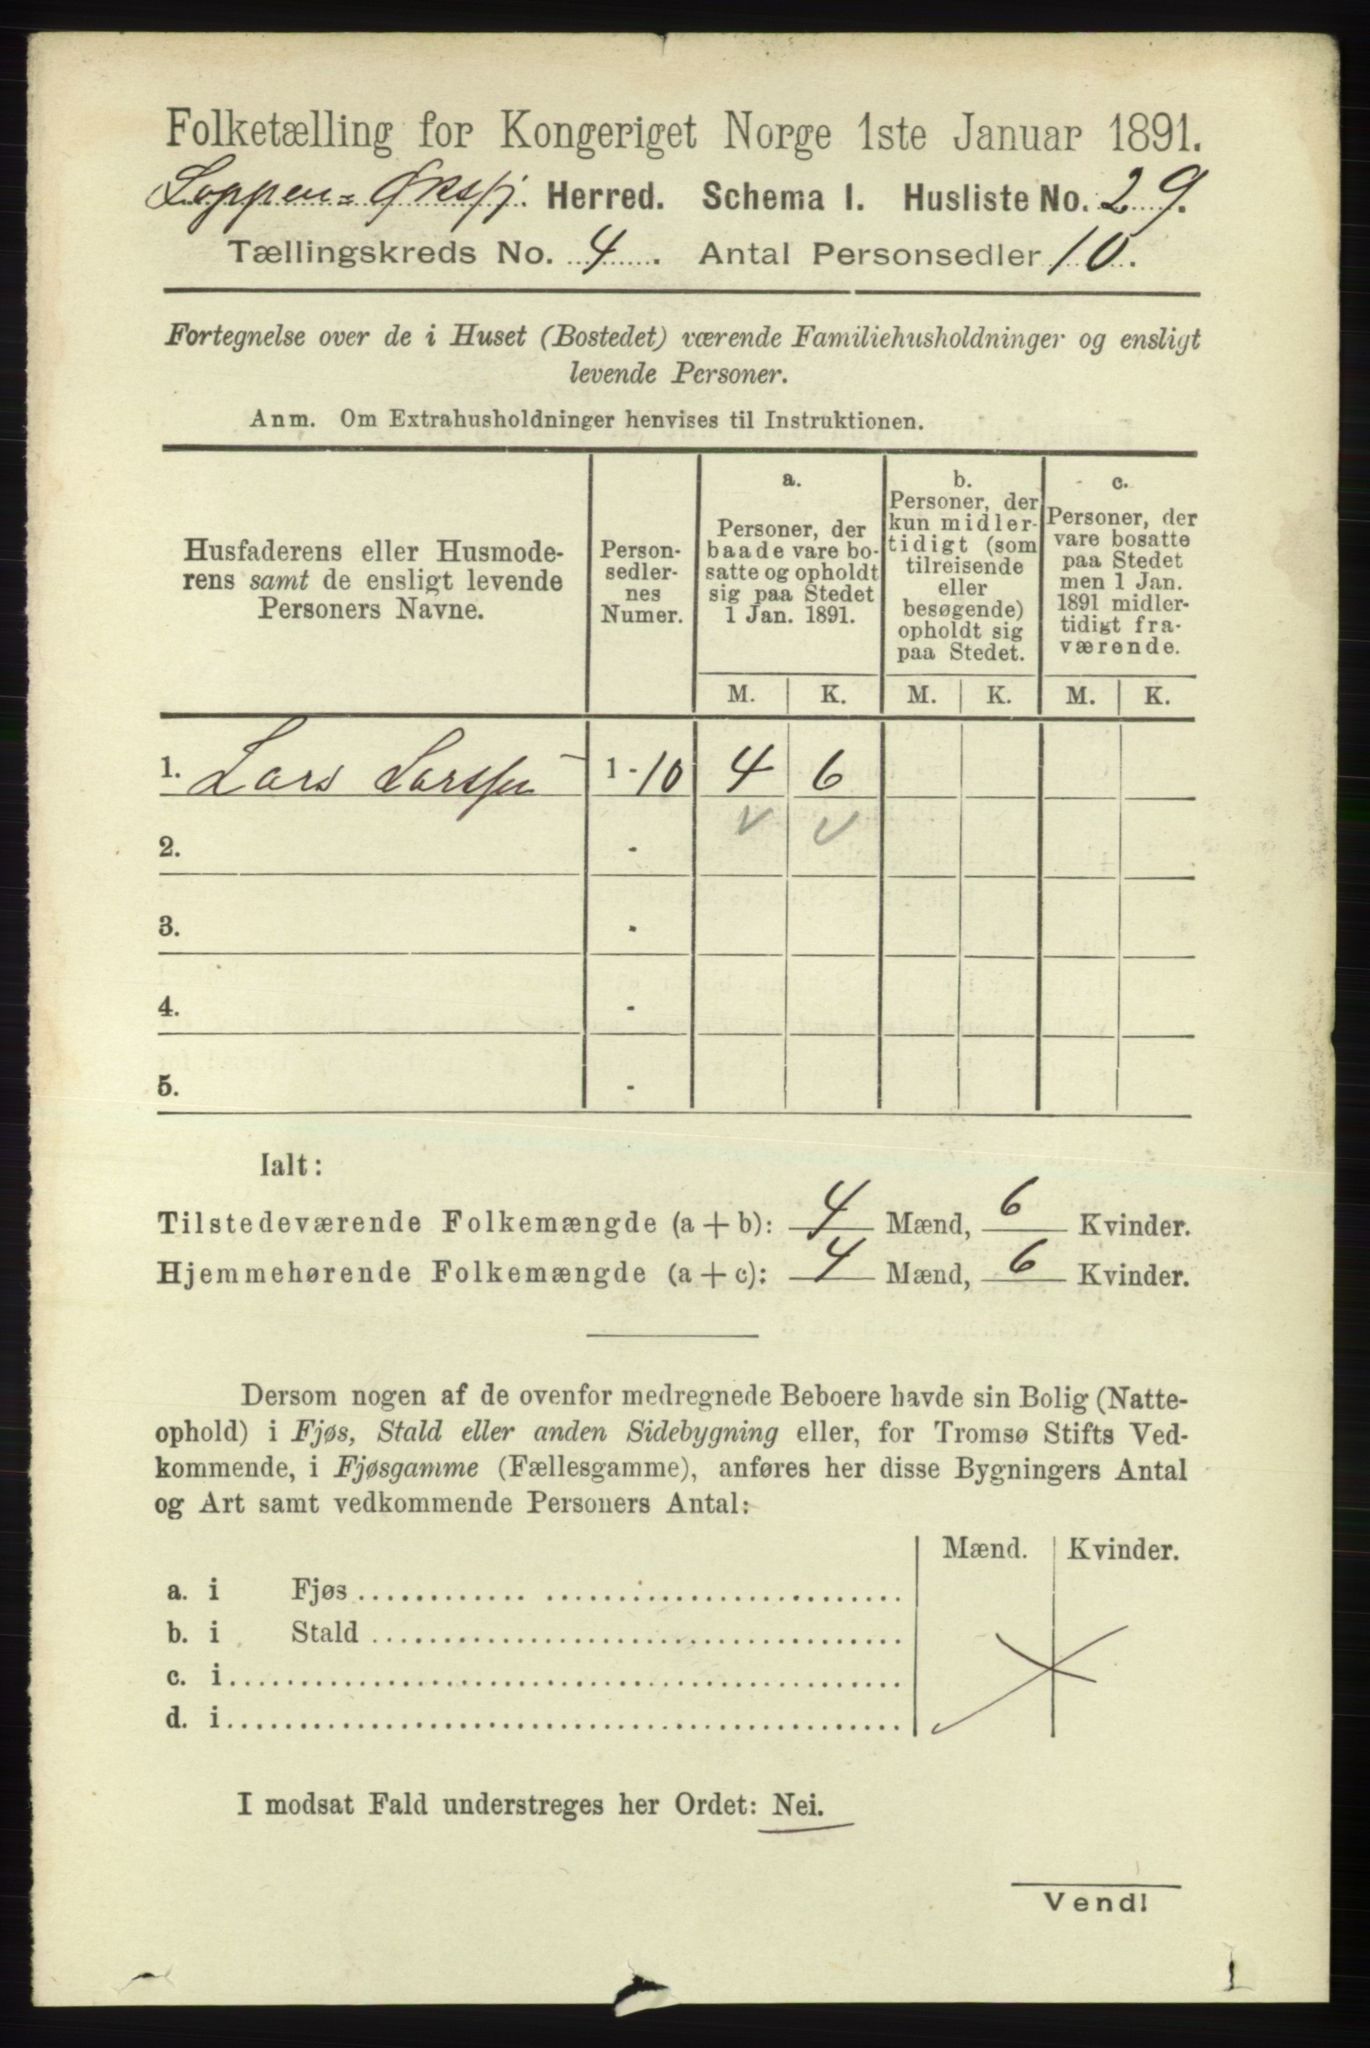 Folketælling for Kongeriget Norge 1ste Januar 1891.
Loppen=Øksfj. Herred. Schema I. Husliste No. 29.
Tællingskreds No. 4. Antal Personsedler 10.
Fortegnelse over de i Huset (Bostedet) værende Familiehusholdninger og ensligt
levende Personer.
Anm. Om Extrahusholdninger henvises til Instruktionen.
Husfaderens eller Husmode-
rens samt de ensligt levende
Personers Navne.
Person-
sedler-
nes
Numer.
a.
Personer, der
baade vare bo-
satte og opholdt
sig paa Stedet
1 Jan. 1891.
b.
Personer, der
kun midler-
tidigt (som
tilreisende
eller
besøgende)
opholdt sig
paa Stedet.
c.
Personer, der
vare bosatte
paa Stedet
men 1 Jan.
1891 midler-
tidigt fra-
værende.
M. K. M. K. M. K.
1. Lars Larssen 1 - 10 4 6
2. -
3. -
4. -
5. -
Ialt:
Tilstedeværende Folkemængde (a + b): 4 Mænd, 6 Kvinder.
Hjemmehørende Folkemængde (a + c): 4 Mænd, 6 Kvinder.
Dersom nogen af de ovenfor medregnede Beboere havde sin Bolig (Natte-
ophold) i Fjøs, Stald eller anden Sidebygning eller, for Tromsø Stifts Ved-
kommende, i Fjøsgamme (Fællesgamme), anføres her disse Bygningers Antal
og Art samt vedkommende Personers Antal:
Mænd. Kvinder.
a. i Fjøs
b. i Stald
c. i
d. i
I modsat Fald understreges her Ordet: Nei.
Vend!